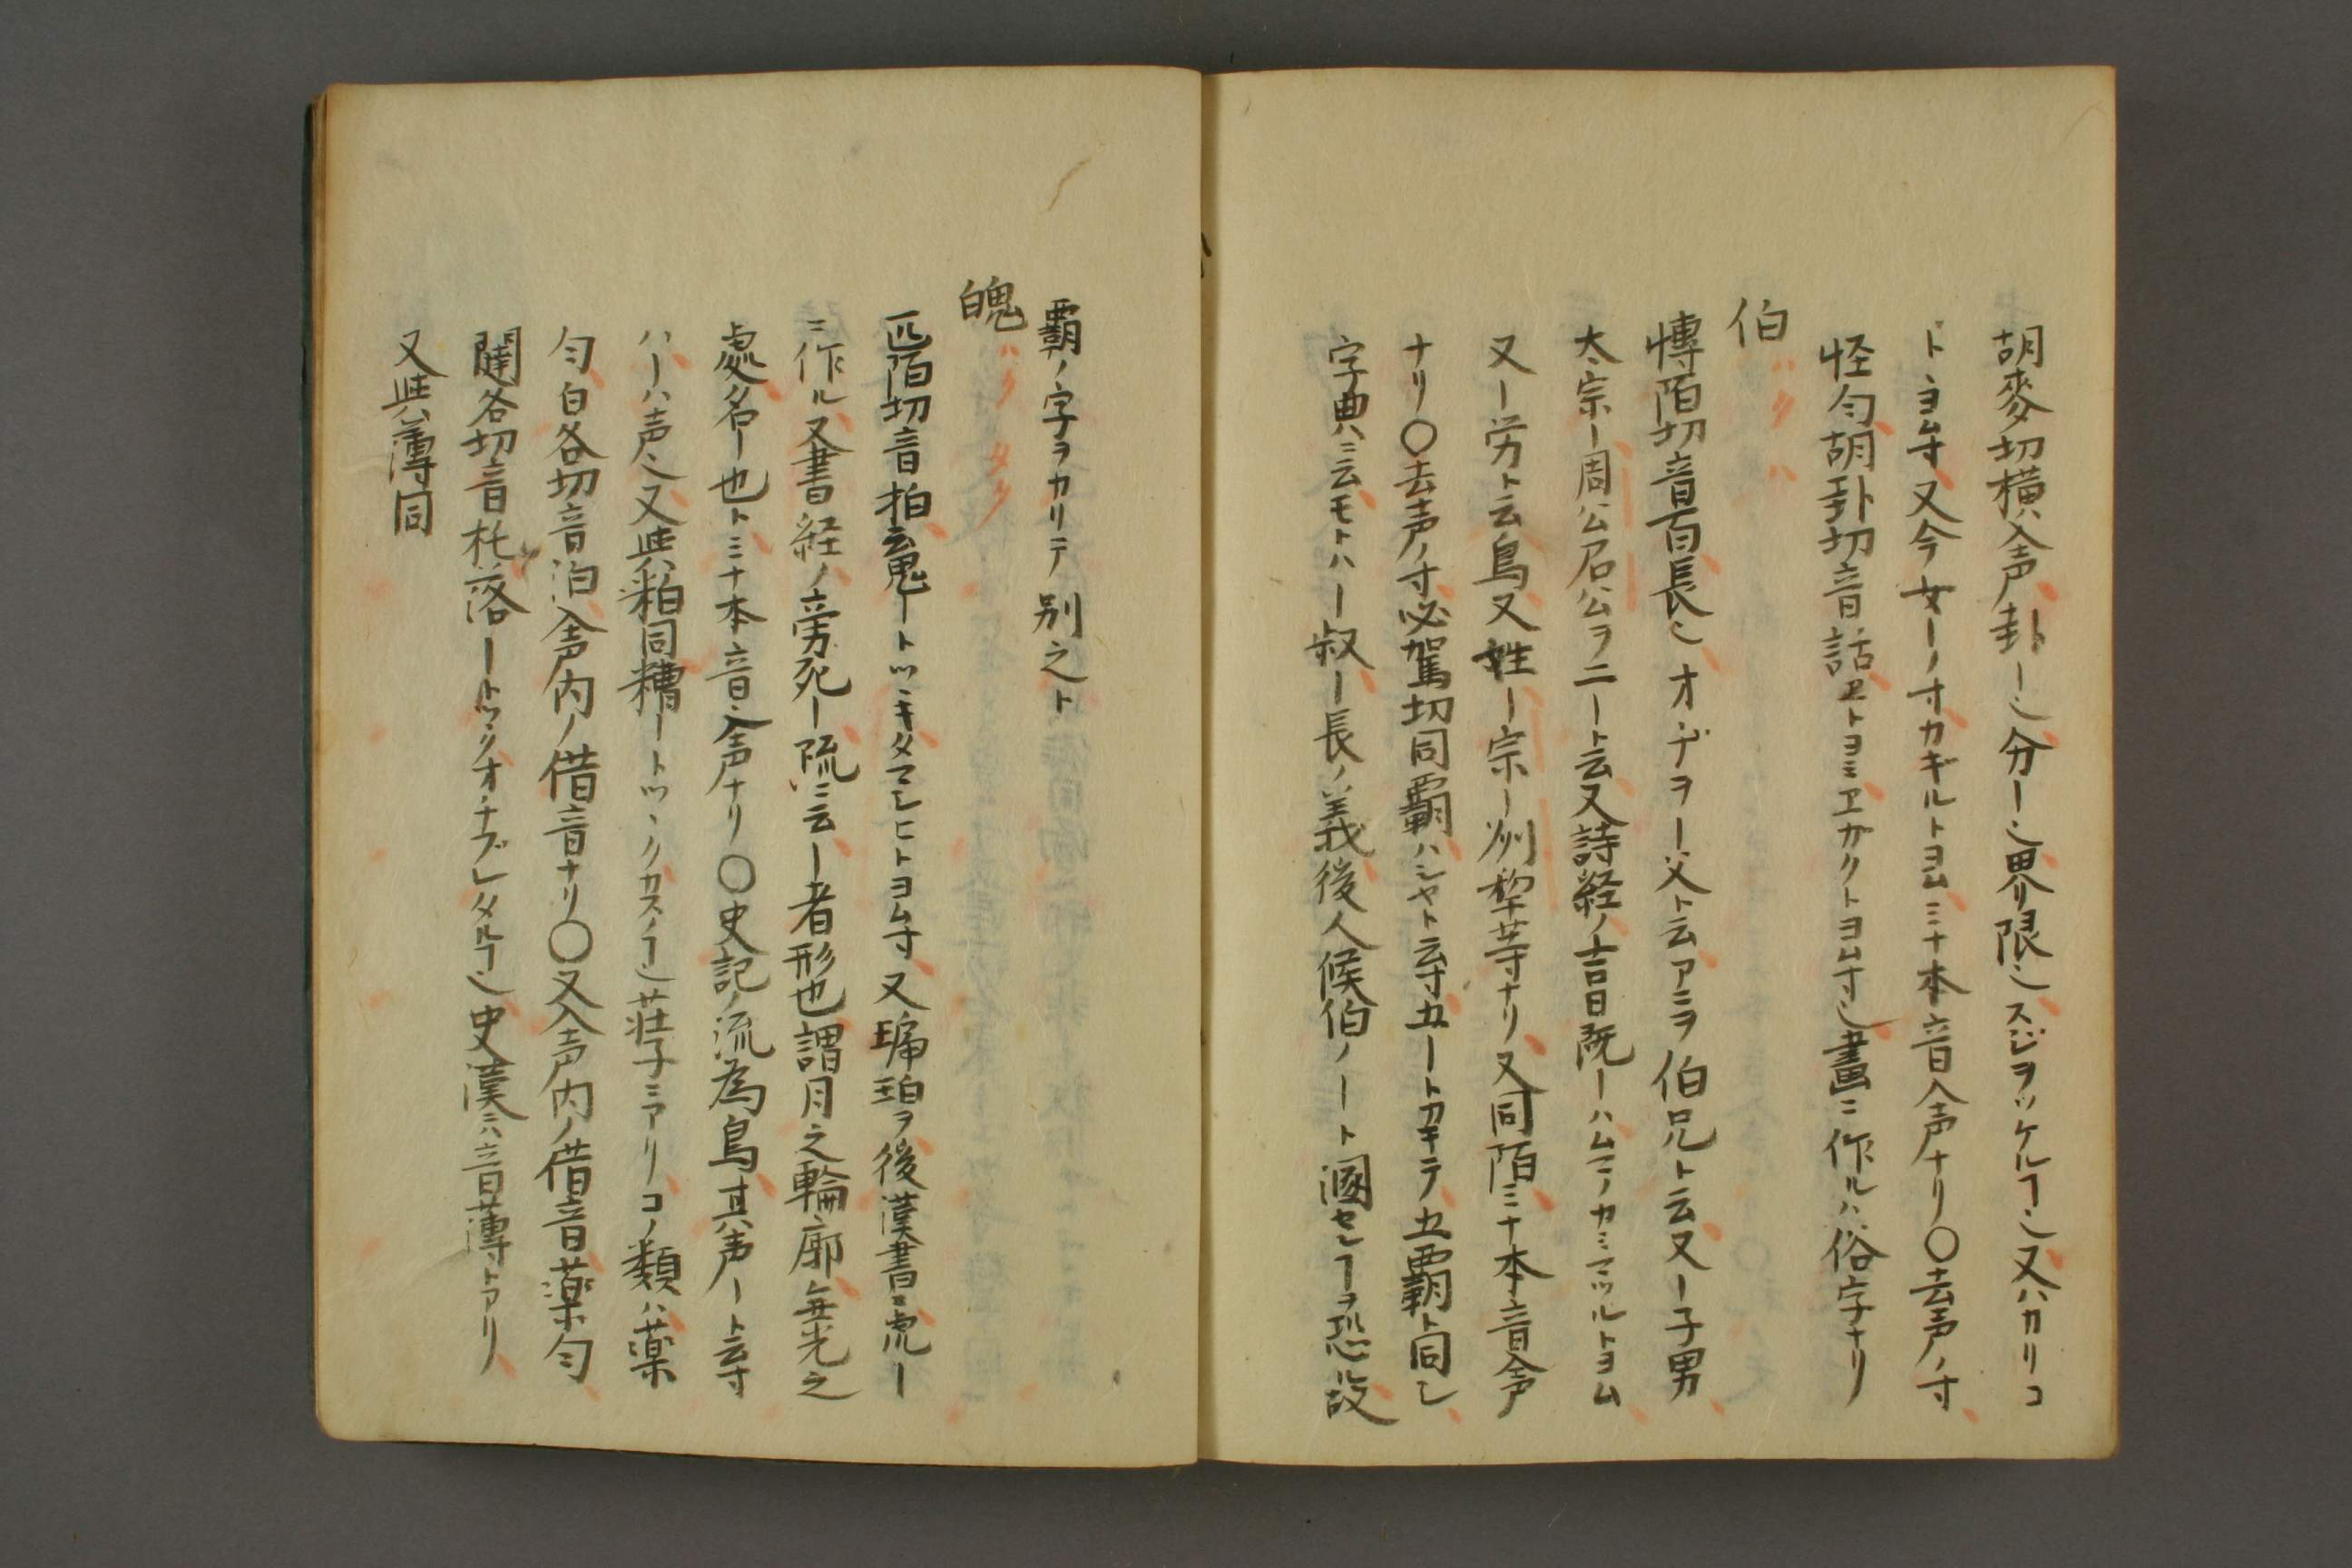 胡麥切横入声卦ー也分ー也界限也スヂヲツケルヿ也又ハカリコ
トヨム寸又今女ーノ寸カギルトヨムミナ本音入声ナリ〇去声ノ寸
怪匀胡卦切音話ヱトヨミヱガクトヨム寸也畫ニ作ルハ俗字ナリ
伯 ハク ハ
博陌切音百長也オヂヲー父ト云アニヲ伯兄ト云又ー子男
太宗ー周公召公ヲ二ート云又詩経ノ吉日既ーハムマノカミマツルトヨム
又ー労ト云鳥又姓ー宗ー州犂等ナリ又同陌ミナ本音入声
ナリ〇去声ノ寸必駕切同覇ハシヤト云寸五ートカキテ五覇ト同シ
字典ニ云モトハー叔ー長ノ義後人侯伯ノート溷センヿヲ恐ル故
覇ノ字ヲカリテ別之ト
魄 ハク タク
匹陌切音拍云鬼ートツヾキタマシヒトヨム寸又琥珀ヲ後漢書ニ虎ー
ニ作ル又書経ノ旁死ー疏ニ云ー者形也謂月之輪廓無光之
處名ー也トミナ本音入声ナリ〇史記ノ流為烏其声ート云寸
ハーハ声也又與粕同糟ートツヾクカスノヿ也荘子ニアリコノ類ハ薬
匀白各切音泊入声内ノ借音ナリ〇又入声内ノ借音薬匀
闥各切音托落ートツヾクオチブレタルヿ也史漢ニハ音薄トアリ
又與薄同